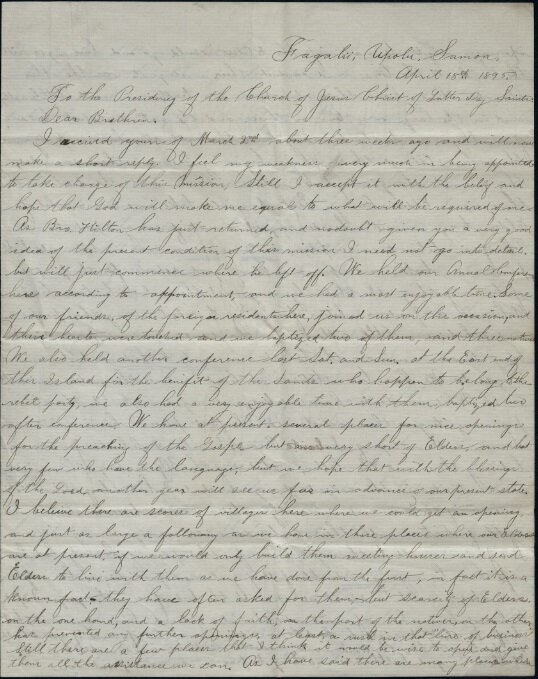 Fagalii, Upolu, Samoa,
April 18th 1895.
To the Presidency of the Church of Jesus Christ of Latter day Saints
Dear Brethren:
I recieved yours of March 2nd about three weeks ago and will now
make a short reply. I feel my weakness very much in being appointed
to take charge of this mission, Still I accept it with the belief and
hope that God will make me equal to what will be required of me.
As Bro. Hilton has just returned, and no doubt given you a very good
idea of the present condition of this mission I need not go into detail.
but will just commence where he left off. We held our Annual Conference
here according to appointment, and we had a most enjoyable time. Some
of our friends, of the foreign residents here, joined us on this occasion, and
there hearts were touched and we baptized two of them, and three natives
We also held another conference last Sat. and Sun. at the East end of
this Island for the benifit of the Saints who happen to belong to the
rebel party, we also had a very enjoyable time with them, baptized two
after conference. We have at present several places for nice openings
for the preaching of the Gospel but are very short of Elders, and but
very few who have the language, but we hope that with the blessings
of the Lord, another year will see us far in advance of our present state.
I believe there are scores of villages here where we could get an opening
and just as large a following as we have in those places where our Elders
are at present, if we would only build them meeting houses and send
Elders to live with them as we have done from the first, in fact it is a
known fact they have often asked for them, but scarcity of Elders
on the one hand, and a lack of faith, on the part of the natives, on the other
has prevented any further openings, at least, a rush in that line of business
Still there are a few places that I think it would be wise to open and give
them all the assistance we can. As I have said there are many places where